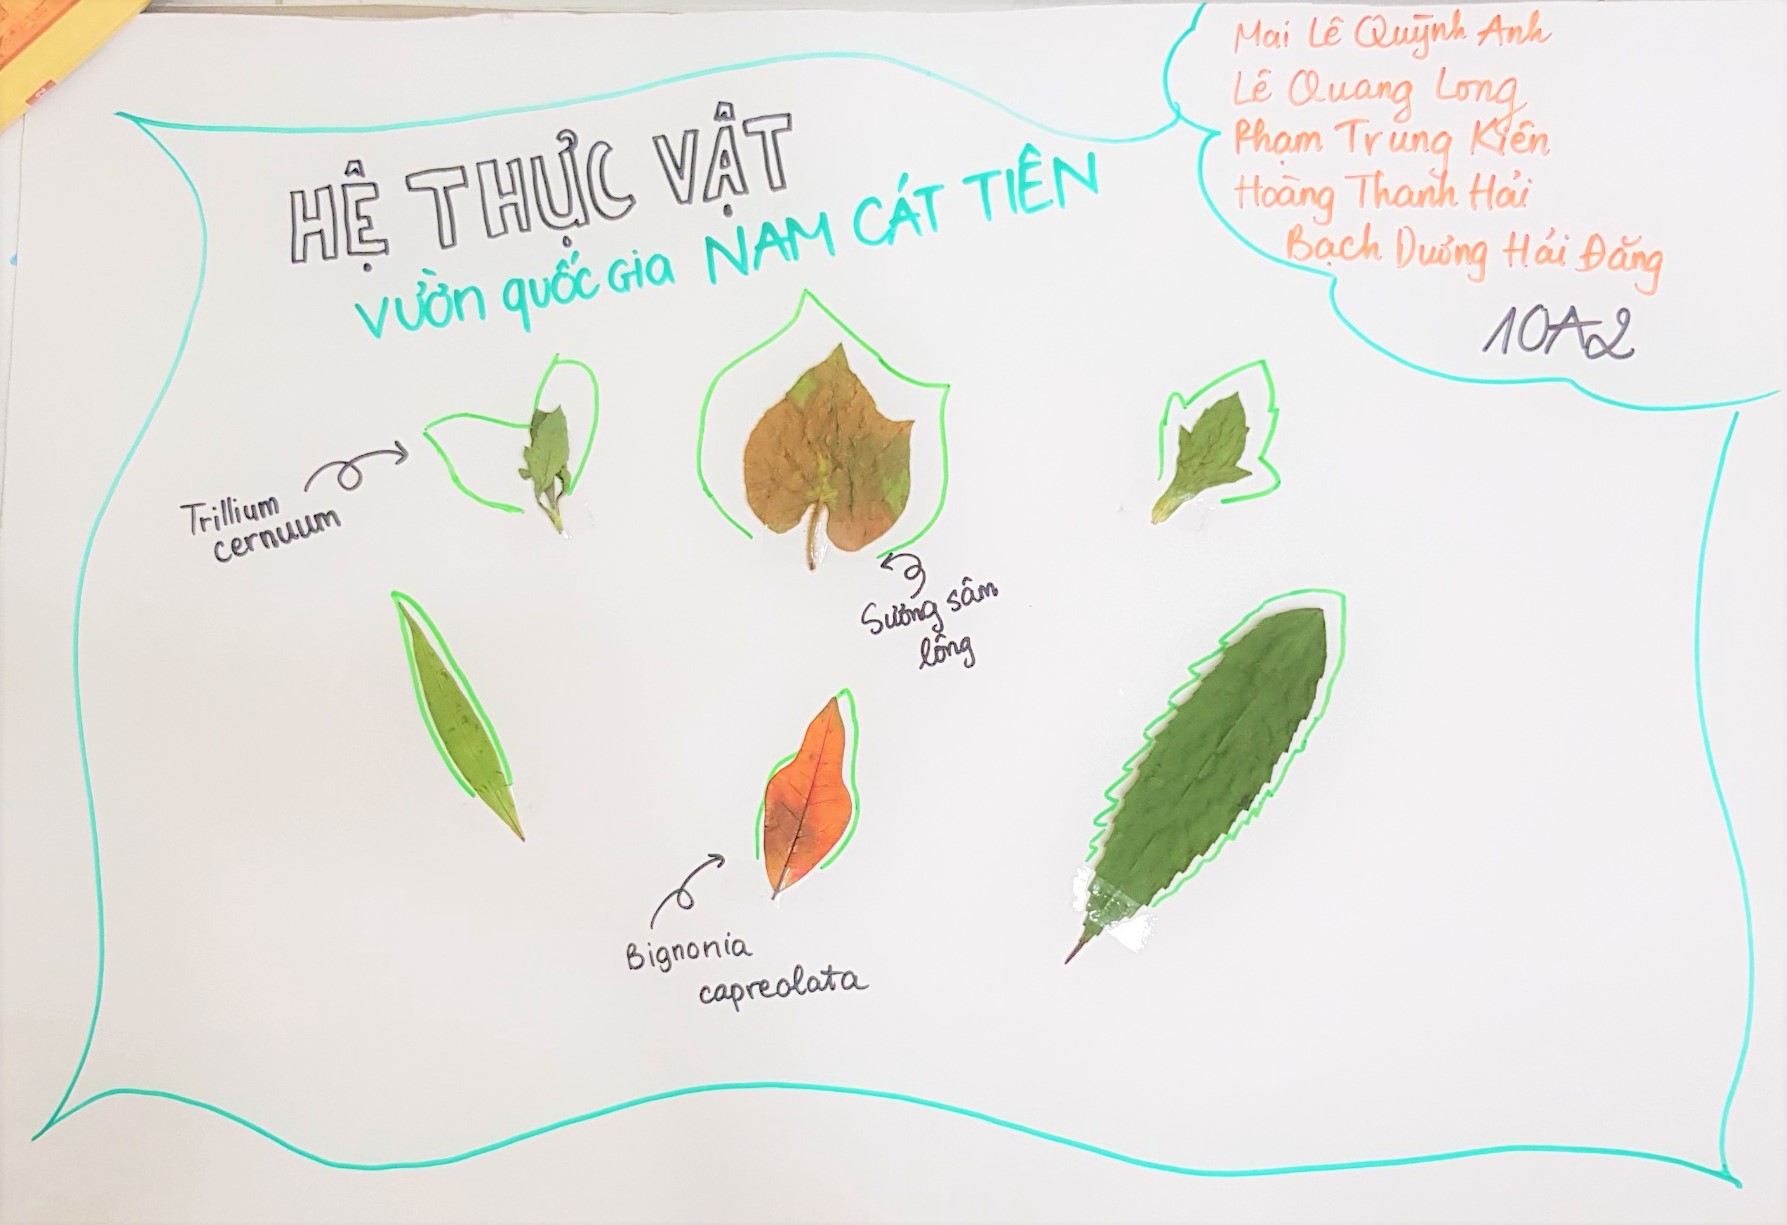 HỆ THỰC VẬT
VƯỜN QUỐC GIA NAM CÁT TIÊN
Mai Lê Quỳnh Anh
Lê Quang Long
Phạm Trung Kiên
Hoàng Thanh Hải
Bạch Dương Hải Đăng
10A2
Trillium
cernuum
Sương sâm
lông
Bignonia
capreolata